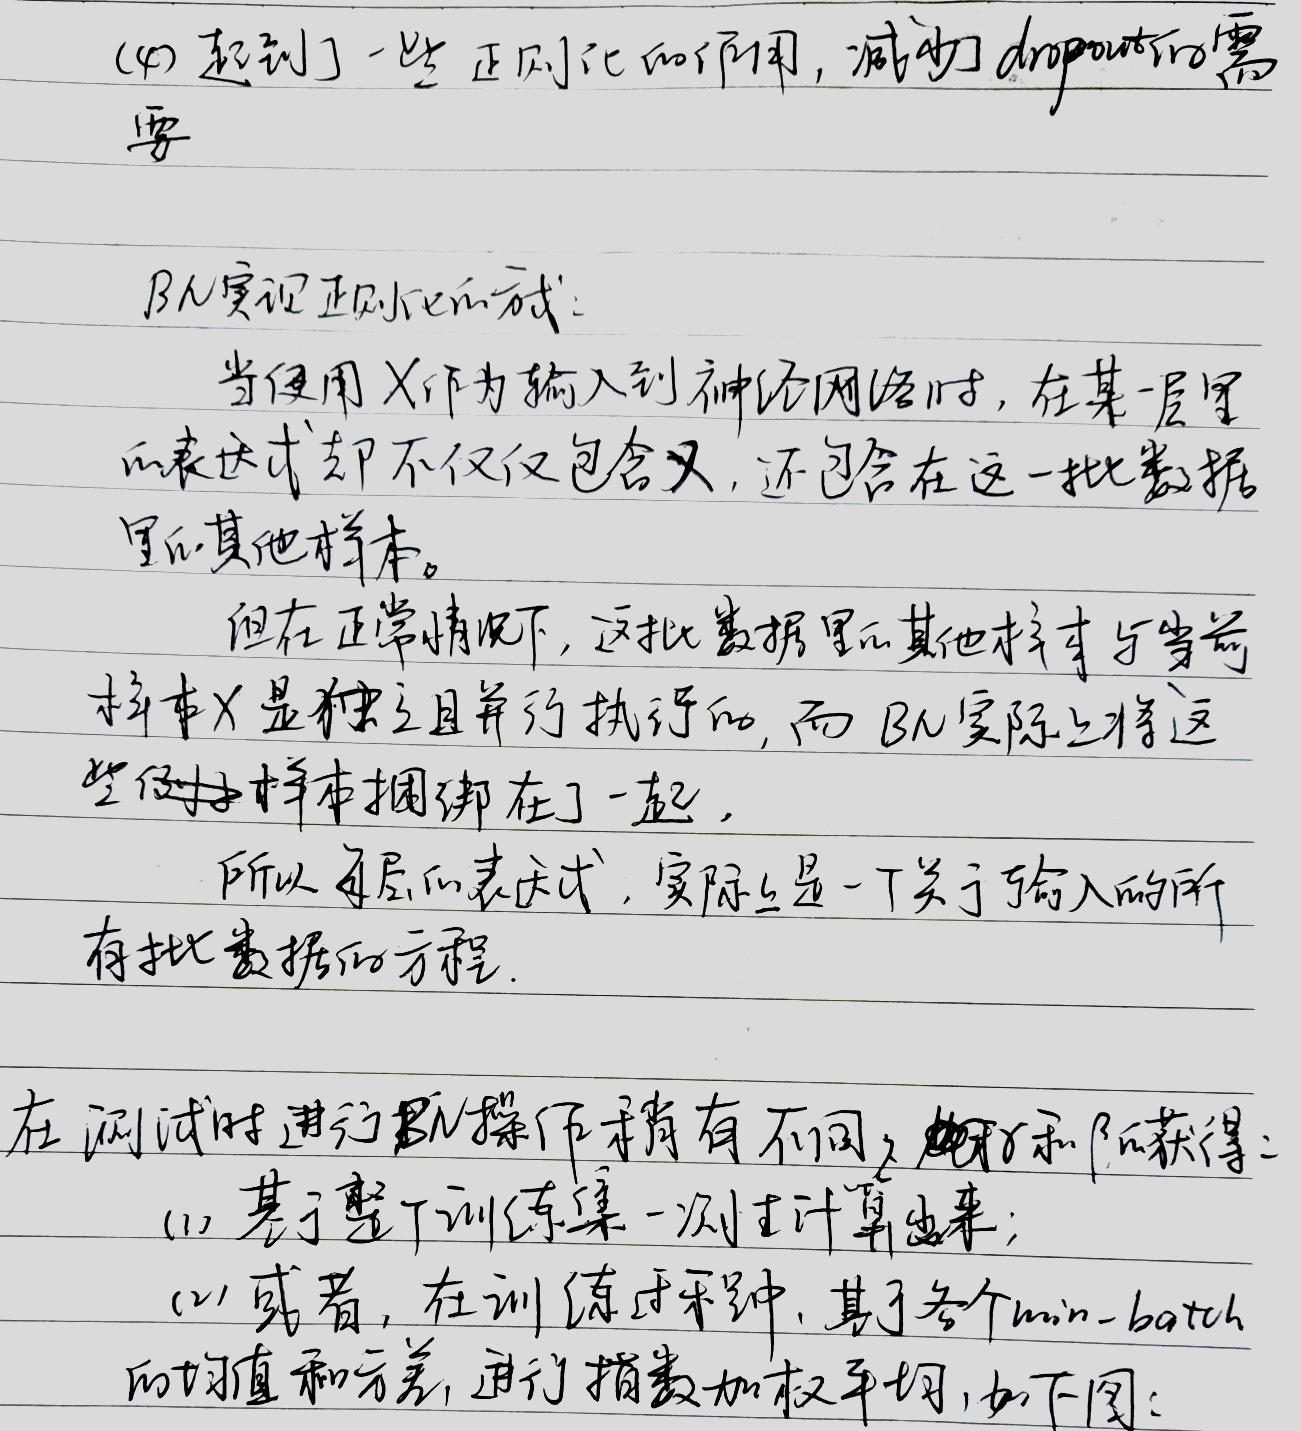 (4) 起到了一些正则化的作用，减少了dropout的需
要
BN实现正则化的方式：
当使用X作为输入到神经网络时，在某一层里
的表达式却不仅仅包含X，还包含在这一批数据
里的其他样本。
但在正常情况下，这批数据里的其他样本与当前
样本X是独立且并行执行的，而BN实际上将这
些样本捆绑在了一起，
所以每层的表达式，实际上是一个关于输入的所
有批数据的方程．
在测试时进行BN操作稍有不同，γ和β的获得：
(1) 基于整个训练集一次性计算出来；
(2) 或者，在训练过程中，基于各个min-batch
的均值和方差，进行指数加权平均，如下图：